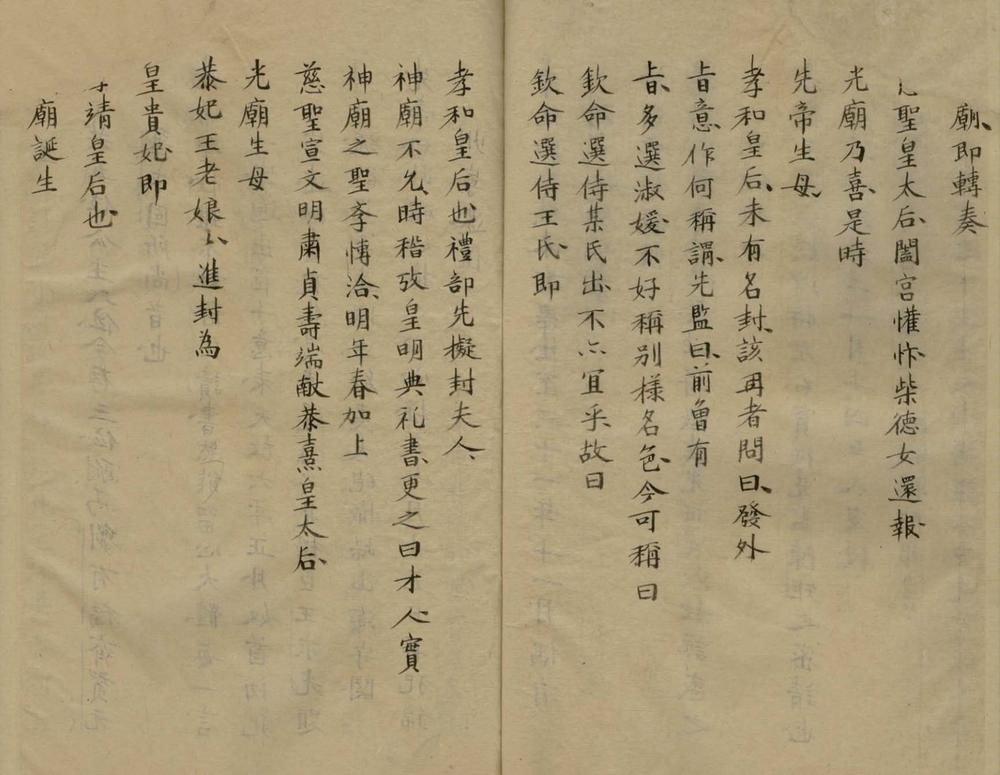 廟、即轉奏
聖皇太后、闔宮懽忭、柴德女還報
光廟乃喜、是時
先帝生母、
孝和皇后、未有名封、該再者問曰、發外
旨意作何稱謂、先監曰、前曾有
旨、多選淑媛、不好稱別樣名色、今可稱曰
欽命選侍某氏出、不亦宜乎、故曰
欽命選侍王氏、即
孝和皇后也、禮部先擬封夫人、
神廟不允、時稽攷皇明典礼書、更之曰才人、實
神廟之聖孝愽洽、明年春加上
慈聖宣文明肅貞壽端献恭熹皇太后、
光廟生母
恭妃王老娘〻、進封為
皇貴妃、即
靖皇后也、
廟誕生